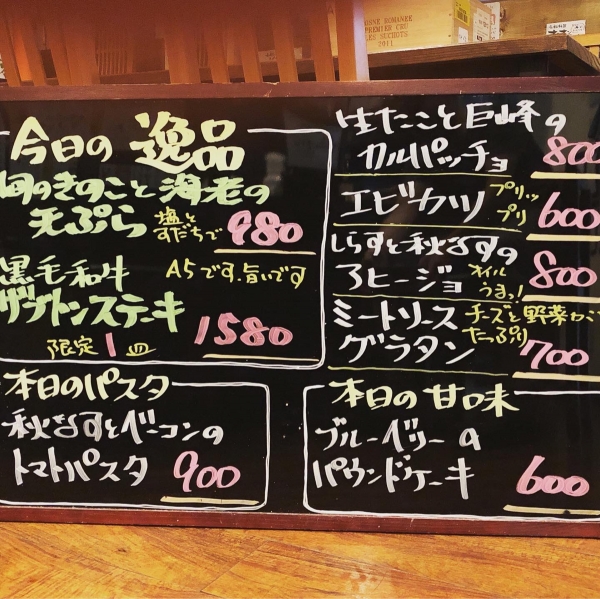 今日の 逸品
旬のきのこと 海老の
天ぷら 塩と
すだちで 980
黒毛和牛 A5です。旨いです
ザブトンステーキ
限定1皿 1580
本日のパスタ
秋なすとベーコンの
トマトパスタ 900
生たこと巨峰の
カルパッチョ 800
エビカツ プリッ
プリ 600
しらすと秋なすの
アヒージョ オイル
うまっ! 800
ミートソース チーズと野菜が
グラタン たっぷり 700
本日の甘味
ブルーベリーの
パウンドケーキ 600
OSNE ROMANEE
PREMIER CRU
LES SUCHOTS
2011